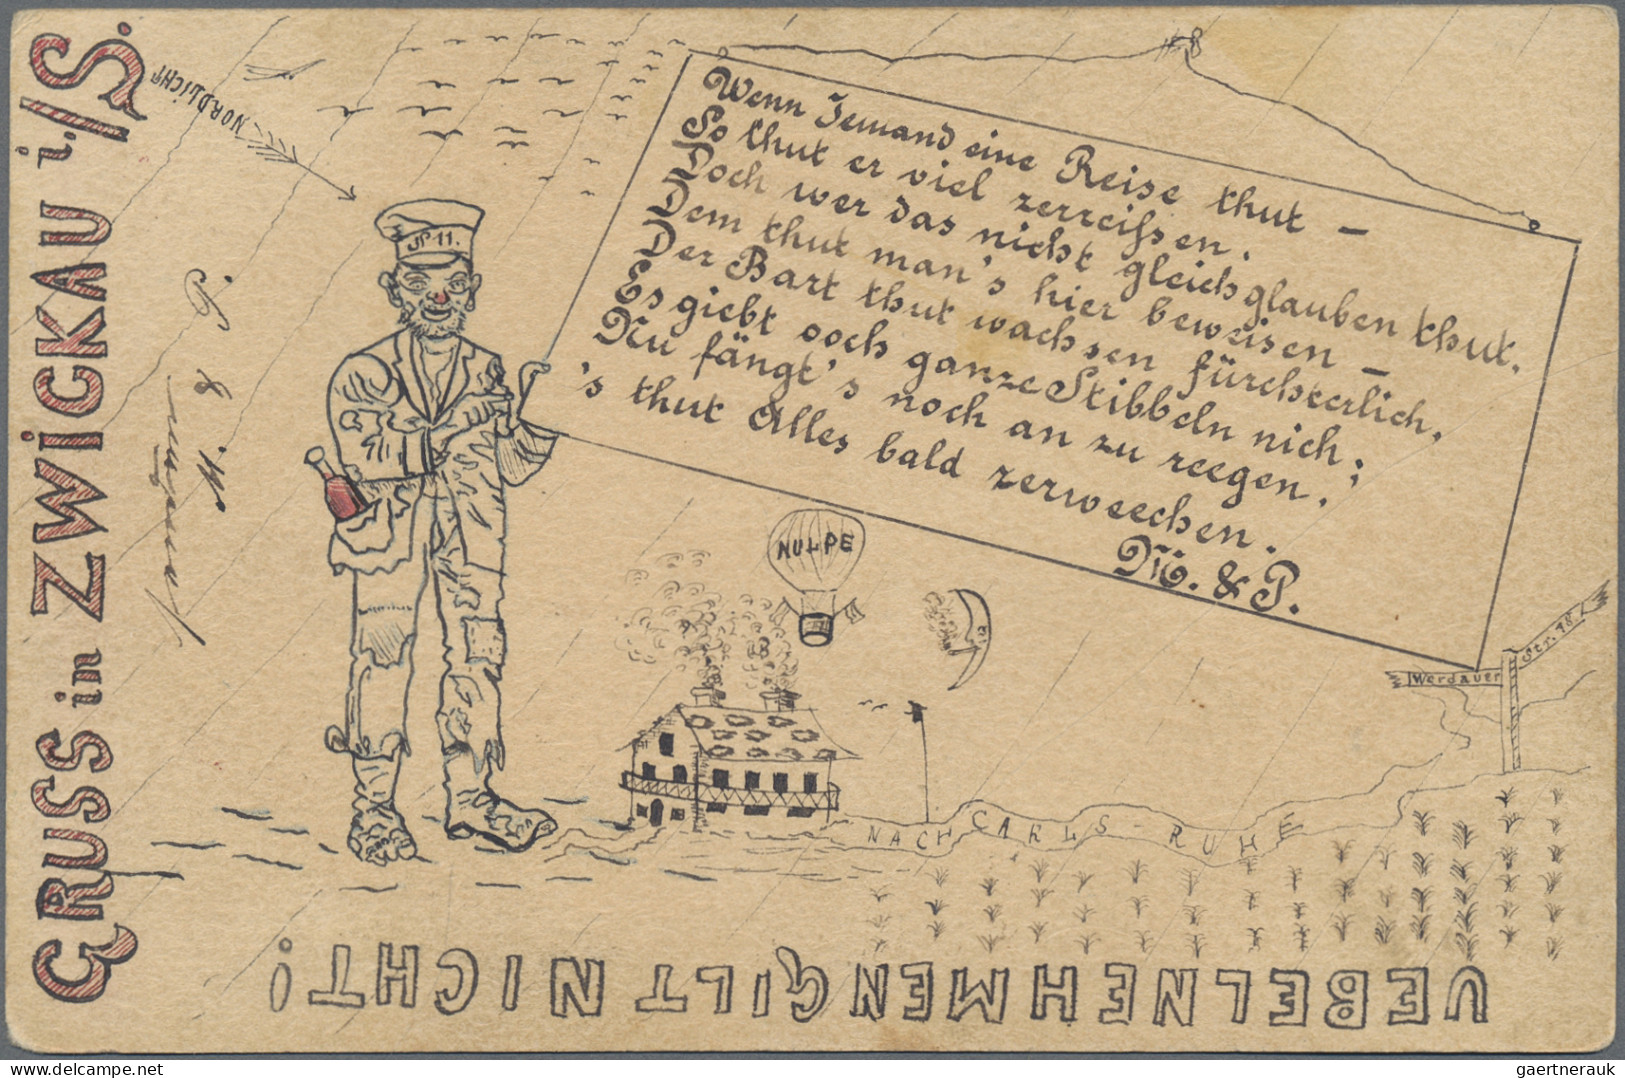 GRUSS in ZWICKAU i./S.
NORDLICHT
№ 11.
Wenn Jemand eine Reise thut –
So thut er viel zerreißen.
Doch wer das nicht gleich glauben thut.
Dem thut man's hier beweisen –
Der Bart thut wachsen fürchterlich,
Es giebt ooch ganze Stibbeln nich;
Nu fängt's noch an zu reegen!
's thut Alles bald zerweechen.
M. & P.
NULPE
Werdauer
Str. 18.
NACH CARLS-RUHE
UEBELNEHMEN GILT NICHT!
gaertnerauk